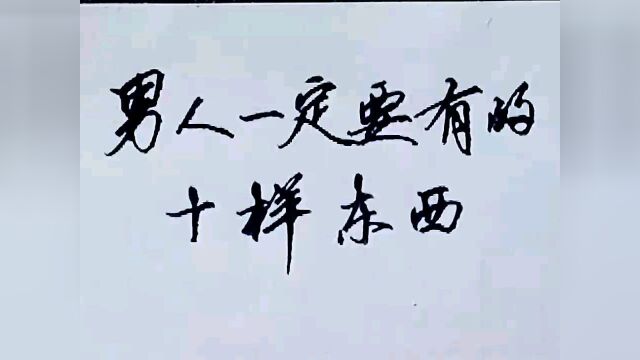 男人一定要有的
十样东西